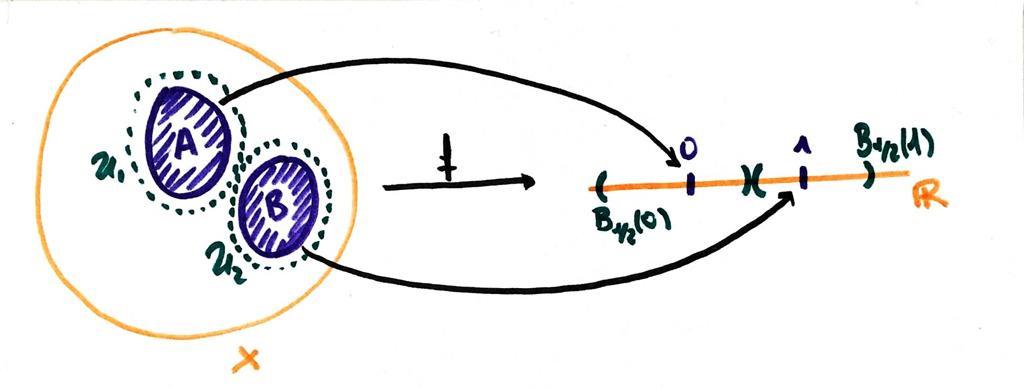 A
B
U₁
U₂
X
f
0
1
B₁/₂(0)
B₁/₂(1)
ℝ